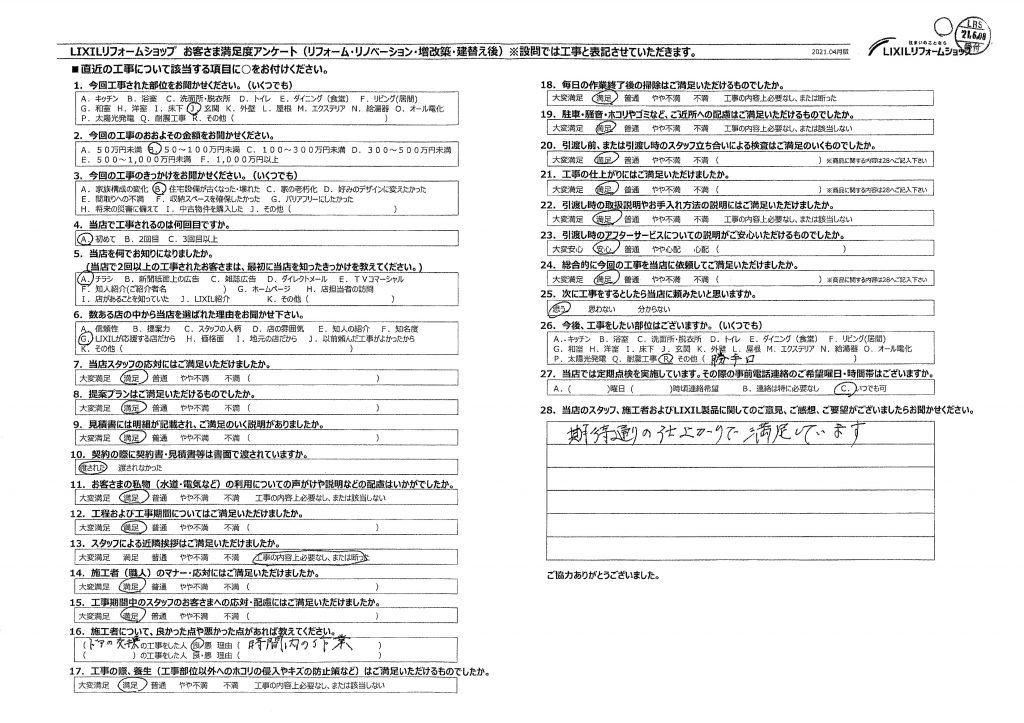 LBS
21.6.08
受付
住まいのことなら
LIXILリフォームショップ
LIXILリフォームショップ お客さま満足度アンケート（リフォーム・リノベーション・増改築・建替え後）※設問では工事と表記させていただきます。
2021.04月版
■直近の工事について該当する項目に○をお付けください。
1. 今回工事された部位をお聞かせください。（いくつでも）
A．キッチン B．浴室 C．洗面所・脱衣所 D．トイレ E．ダイニング（食堂） F．リビング(居間)
G．和室 H．洋室 I．床下 J．玄関 K．外壁 L．屋根 M．エクステリア N．給湯器 O．オール電化
P．太陽光発電 Q．耐震工事 R．その他（ ）
2. 今回の工事のおおよその金額をお聞かせください。
A．５０万円未満 B．５０～１００万円未満 C．１００～３００万円未満 D．３００～５００万円未満
E．５００～1,０００万円未満 F．1,０００万円以上
3. 今回の工事のきっかけをお聞かせください。（いくつでも）
A．家族構成の変化 B．住宅設備が古くなった・壊れた C．家の老朽化 D．好みのデザインに変えたかった
E．間取りへの不満 F．収納スペースを確保したかった G．バリアフリーにしたかった
H．将来の災害に備えて I．中古物件を購入した J．その他（ ）
4. 当店で工事されるのは何回目ですか。
A．初めて B．2回目 C．3回目以上
5. 当店を何でお知りになりましたか。
(当店で２回以上の工事されたお客さまは、最初に当店を知ったきっかけを教えてください。)
A．チラシ B．新聞紙面上の広告 C．雑誌広告 D．ダイレクトメール E．ＴＶコマーシャル
F．知人紹介(ご紹介者名 ） G．ホームページ H．店担当者の訪問
I．店があることを知っていた J．LIXIL紹介 K．その他（ ）
6. 数ある店の中から当店を選ばれた理由をお聞かせ下さい。
A．信頼性 B．提案力 C．スタッフの人柄 D．店の雰囲気 E．知人の紹介 F．知名度
G．LIXILが応援する店だから H．価格面 I．地元の店だから J．以前頼んだ工事がよかったから
K．その他（ ）
7. 当店スタッフの応対にはご満足いただけましたか。
大変満足 満足 普通 やや不満 不満（ ）
8. 提案プランはご満足いただけるものでしたか。
大変満足 満足 普通 やや不満 不満（ ）
9. 見積書には明細が記載され、ご満足のいく説明がありましたか。
大変満足 満足 普通 やや不満 不満（ ）
10. 契約の際に契約書・見積書等は書面で渡されていますか。
渡された 渡されなかった
11. お客さまの私物（水道・電気など）の利用についての声がけや説明などの配慮はいかがでしたか。
大変満足 満足 普通 やや不満 不満 工事の内容上必要なし、または該当しない
12. 工程および工事期間についてはご満足いただけましたか。
大変満足 満足 普通 やや不満 不満（ ）
13. スタッフによる近隣挨拶はご満足いただけましたか。
大変満足 満足 普通 やや不満 不満 工事の内容上必要なし、または断った
14. 施工者（職人）のマナー・応対にはご満足いただけましたか。
大変満足 満足 普通 やや不満 不満（ ）
15. 工事期間中のスタッフのお客さまへの応対・配慮にはご満足いただけましたか。
大変満足 満足 普通 やや不満 不満（ ）
16. 施工者について、良かった点や悪かった点があれば教えてください。
（ドアの交換 の工事をした人 良・悪 理由（ 時間内の作業 ）
（ ）の工事をした人 良・悪 理由（ ）
17. 工事の際、養生（工事部位以外へのホコリの侵入やキズの防止策など）はご満足いただけるものでしたか。
大変満足 満足 普通 やや不満 不満 工事の内容上必要なし、または該当しない
18. 毎日の作業終了後の掃除はご満足いただけるものでしたか。
大変満足 満足 普通 やや不満 不満 工事の内容上必要なし、または断った
19. 駐車・騒音・ホコリやゴミなど、ご近所への配慮はご満足いただけるものでしたか。
大変満足 満足 普通 やや不満 不満 工事の内容上必要なし、または該当しない
20. 引渡し前、または引渡し時のスタッフ立ち合いによる検査はご満足のいくものでしたか。
大変満足 満足 普通 やや不満 不満（ ）※商品に関する内容は28へご記入下さい
21. 工事の仕上がりにはご満足いただけましたか。
大変満足 満足 普通 やや不満 不満（ ）※商品に関する内容は28へご記入下さい
22. 引渡し時の取扱説明やお手入れ方法の説明にはご満足いただけましたか。
大変満足 満足 普通 やや不満 不満 工事の内容上必要なし、または該当しない
23. 引渡し時のアフターサービスについての説明がご安心いただけるものでしたか。
大変安心 安心 普通 やや心配 心配（ ）
24. 総合的に今回の工事を当店に依頼してご満足いただけましたか。
大変満足 満足 普通 やや不満 不満（ ）※商品に関する内容は28へご記入下さい
25. 次に工事をするとしたら当店に頼みたいと思いますか。
思う 思わない 分からない
26. 今後、工事をしたい部位はございますか。（いくつでも）
A．キッチン B．浴室 C．洗面所・脱衣所 D．トイレ E．ダイニング（食堂） F．リビング(居間)
G．和室 H．洋室 I．床下 J．玄関 K．外壁 L．屋根 M．エクステリア N．給湯器 O．オール電化
P．太陽光発電 Q．耐震工事 R．その他（ 勝手口 ）
27. 当店では定期点検を実施しています。その際の事前電話連絡のご希望曜日・時間帯はございますか。
A．（ ）曜日（ ）時頃連絡希望 B．連絡は特に必要なし C．いつでも可
28. 当店のスタッフ、施工者およびLIXIL製品に関してのご意見、ご感想、ご要望がございましたらお聞かせください。
期待通りの仕上がりで満足しています
ご協力ありがとうございました。